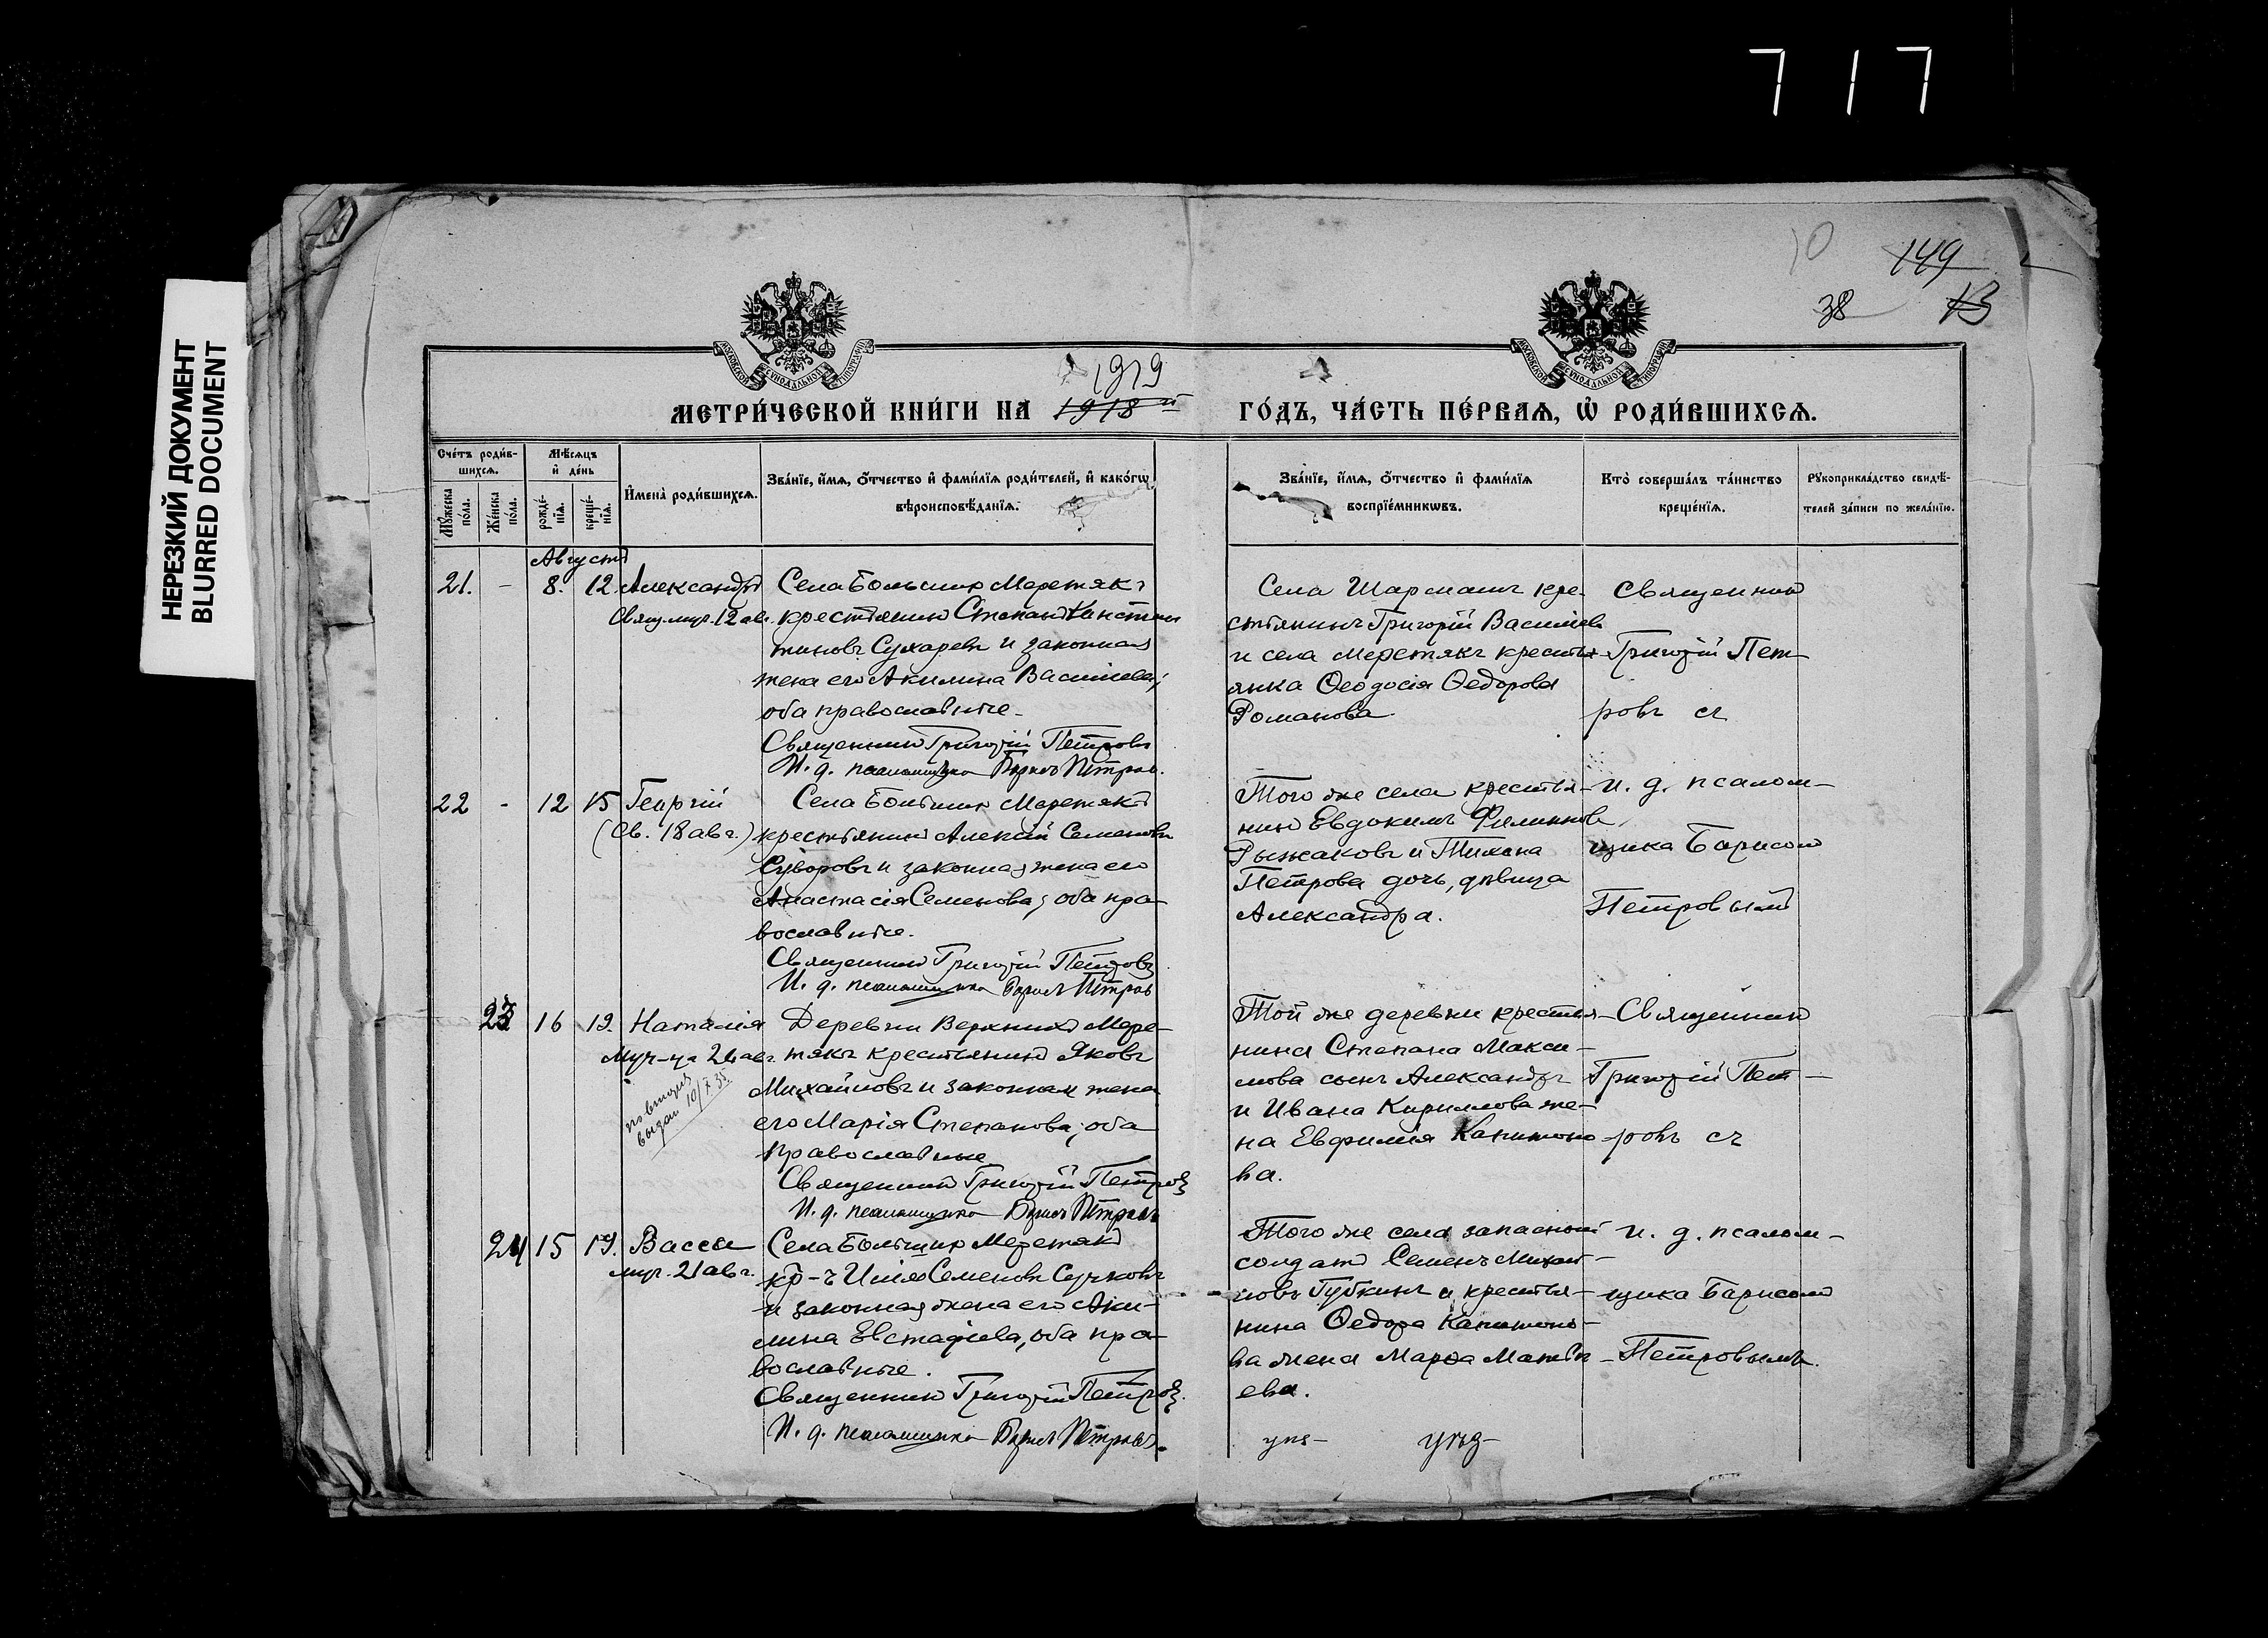 717
НЕРЕЗКИЙ ДОКУМЕНТ
BLURRED DOCUMENT
10
149
38
13
МОСКОВСКОЙ СѴНОДАЛЬНОЙ ТИПОГРАФІИ
МОСКОВСКОЙ СѴНОДАЛЬНОЙ ТИПОГРАФІИ
1919
МЕТРИ́ЧЕСКОЙ КНИ́ГИ НА 1918й ГО́ДЪ, ЧА́СТЬ ПЕ́РВАѦ, Ѡ҆ РОДИ́ВШИХСѦ.
Сче́тъ роди́в-
шихсѧ.
Мꙋ́жеска по́ла.
Же́нска по́ла.
Мѣ́сѧцъ и҆ де́нь
рожде́-
нїѧ.
креще́-
нїѧ.
И҆мена̀ роди́вшихсѧ.
Зва́нїе, и҆́мѧ, о҆́тчество и҆ фами́лїѧ роди́телей, и҆ како́гѡ
вѣроисповѣ́данїѧ.
Зва́нїе, и҆́мѧ, о҆́тчество и҆ фами́лїѧ
воспрїе́мникѡвъ.
Кто̀ соверша́лъ та́инство
креще́нїѧ.
Рꙋкоприкла́дство свидѣ́-
телей за́писи по жела́нїю.
Августъ
21. - 8. 12. Александръ
Свящ. муч. 12 авг.
Села Большихъ Меретякъ
крестьянинъ Степанъ Констан
тиновъ Сухаревъ и законная
жена его Акилина Васильева,
оба православные.
Священникъ Григорій Петровъ
И. д. псаломщика Борисъ Петровъ.
Села Шармашъ кре-
стьянинъ Григорій Васильев
и села Меретякъ крестья-
янка Ѳеодосія Ѳедорова
Романова.
Священник
Григорій Пет-
ровъ съ
22 - 12 15 Георгій
(Св. 18 авг.)
Села Большихъ Меретякъ
крестьянинъ Алексій Семеновъ
Суворовъ и законная жена его
Анастасія Семенова, оба пра-
вославные.
Священникъ Григорій Петровъ
И. д. псаломщика Борисъ Петровъ
Того же села крестья-
нинъ Евдокимъ Филиппов
Рыжаковъ и Тихона
Петрова дочь, дѣвица
Александра.
и. д. псалом-
щика Борисомъ
Петровымъ
23 16 19. Наталія
Муч-ца 26 авг.
повторно
выдан 10/X 35
Деревни Верхнихъ Мере-
тякъ крестьянинъ Яковъ
Михайловъ и законная жена
его Марія Степанова, оба
православные
Священникъ Григорій Петровъ
И. д. псаломщика Борисъ Петровъ
Той же деревни крестья-
нина Степана Макси-
мова сынъ Александръ
и Ивана Кириллова же-
на Евфимія Капитоно-
ва.
Священникъ
Григорій Пет-
ровъ съ
24 15 19. Васса
муч. 21 авг.
Села Большихъ Меретякъ
кр-ъ Илія Семеновъ Сучковъ
и законная жена его Аки-
лина Евстафіева, оба пра-
вославные.
Священникъ Григорій Петровъ.
И. д. псаломщика Борисъ Петровъ.
Того же села запасный
солдатъ Семенъ Михай-
ловъ Губкинъ и крестья-
нина Ѳедора Капитоно-
ва жена Марѳа Матвѣ-
ева.
и. д. псалом-
щика Борисомъ
Петровымъ.